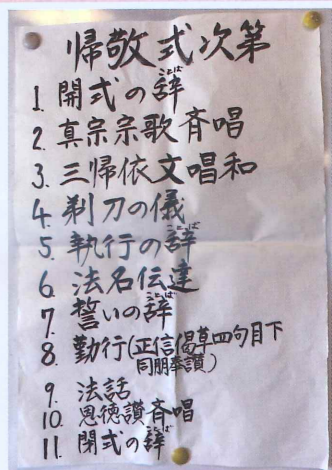 帰敬式次第
1. 開式の辞
2. 真宗宗歌斉唱
3. 三帰依文唱和
4. 剃刀の儀
5. 執行の辞
6. 法名伝達
7. 誓いの辞
8. 勤行(正信偈草四句目下
同朋奉讃)
9. 法話
10. 恩徳讃斉唱
11. 閉式の辞